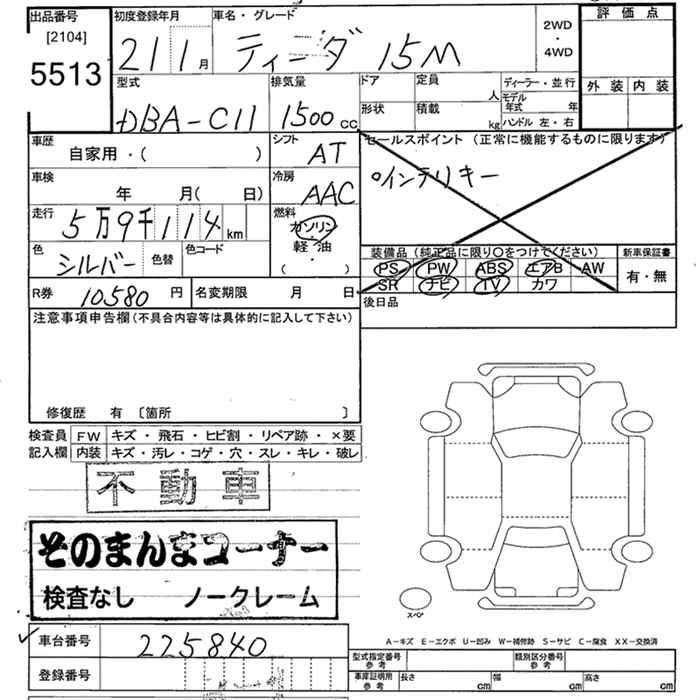 出品番号
[2104]
5513
初度登録年月
21 1月
車名・グレード
ティーダ 15M
2WD
・
4WD
評価点
外装 内装
型式
DBA-C11
排気量
1500 cc
ドア
形状
定員
人
積載
kg
ディーラー・並行
モデル年式 年
ハンドル 左・右
車歴
自家用・( )
シフト
AT
セールスポイント (正常に機能するものに限ります)
インテリキー
車検
年 月( 日)
冷房
AAC
走行
5万9千114km
燃料
ガソリン
軽・油
( ・ )
色
シルバー
色替
色コード
装備品 (純正品に限り〇をつけてください)
PS PW ABS エアB AW
SR ナビ TV カワ
新車保証書
有・無
R券
10580 円
名変期限 月 日
後日品
注意事項申告欄 (不具合内容等は具体的に記入して下さい)
修復歴 有 〔箇所 〕
検査員 FW キズ・飛石・ヒビ割・リペア跡・×要
記入欄 内装 キズ・汚レ・コゲ・穴・スレ・キレ・破レ
不動車
そのまんまコーナー
検査なし ノークレーム
スペア
A-キズ E-エクボ U-凹み W-補修跡 S-サビ C-腐食 XX-交換済
車台番号
225840
登録番号
型式指定番号
参考
類別区分番号
参考
車庫証明用
参考
長さ cm 幅 cm 高さ cm